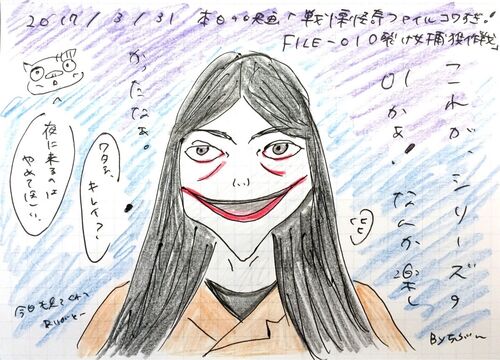 2017/3/31 本日の映画「戦慄怪奇ファイルコワすぎ!
FILE-01 口裂け女捕獲作戦」
これが、シリーズの
01かぁ。なんか楽し
かったなぁ。
ワタシ、
キレイ?
夜に来るのは
やめてほしい。
今日も見てくれて
ありがとー
By